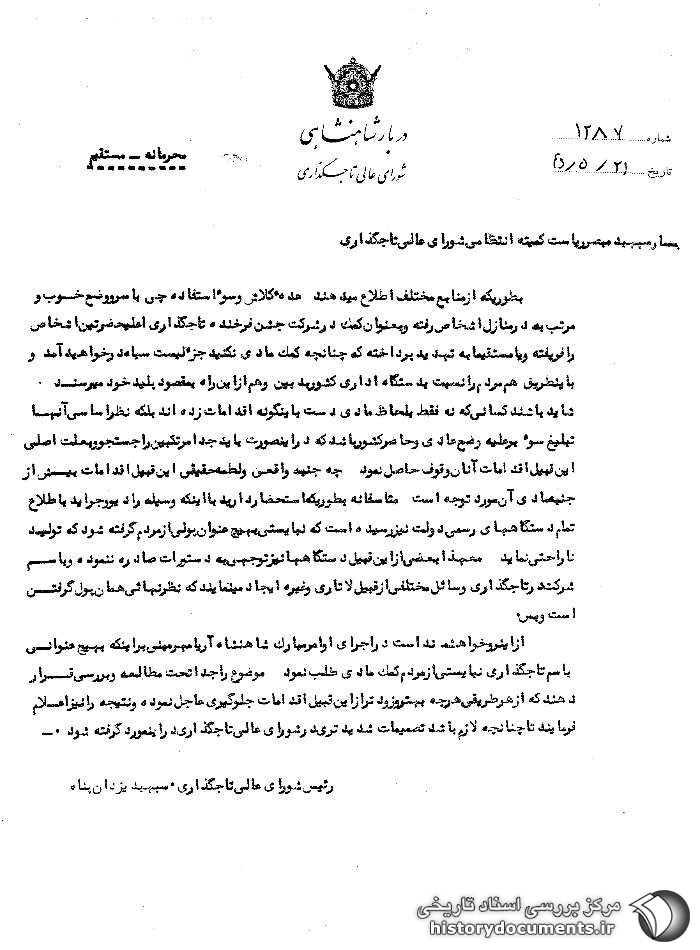 دربار شاهنشاهی
شورای عالی تاجگذاری
شماره ۱۲۸۷
تاریخ ۲۱ / ۵ /
محرمانه – مستقیم
تیمسار سپهبد مبصر ریاست کمیته انتظامی شورای عالی تاجگذاری
بطوریکه از منابع مختلف اطلاع میدهند عده کلاش و سوء استفاده چی با سر و وضع خوب و
مرتب به در منازل اشخاص رفته و بعنوان کمک در شرکت جشن فرخنده تاجگذاری اعلیحضرتین اشخاص
را فریفته و یا مستقیما به تهدید پرداخته که چنانچه کمک مادی نکنید جزء لیست سیاه در خواهید آمد و
باینطریق هم مردم را نسبت بدستگاه اداری کشور بدبین و هم از این راه بمقصود پلید خود میرسند ۰
شاید باشند کسانی که نه فقط بلحاظ مادی دست باینگونه اقدامات زده اند بلکه نظر اساسی آنها
تبلیغ سوء بر علیه وضع عادی و حاضر کشور باشد که در اینصورت باید جدا مرتکبین را جستجو و بعلت اصلی
این قبیل اقدامات آنان وقوف حاصل نمود چه جنبه واقعی و لطمه حقیقی این قبیل اقدامات بیش از
جنبه مادی آن مورد توجه است متاسفانه بطوریکه استحضار دارید با اینکه وسیله رادیو و جراید باطلاع
تمام دستگاههای رسمی دولت نیز رسیده است که نبایستی بهیچ عنوان پولی از مردم گرفته شود که تولید
ناراحتی نماید معهذا بعضی از این قبیل دستگاهها نیز توجهی به دستورات صادره ننموده و باسم
شرکت در تاجگذاری وسائل مختلفی از قبیل لاتاری و غیره ایجاد مینمایند که نظر نهائی همان پول گرفتن
است و بس۰
از اینرو خواهشمند است در اجرای اوامر مبارک شاهنشاه آریامهر مبنی بر اینکه بهیچ عنوانی
باسم تاجگذاری نبایستی از مردم کمک مادی طلب نمود موضوع را جدا تحت مطالعه و بررسی قرار
دهند که از هر طریقی هرچه بهتر و زودتر از این قبیل اقدامات جلوگیری عاجل نموده و نتیجه را نیز اعلام
فرمایند تا چنانچه لازم باشد تصمیمات شدیدتری در شورای عالی تاجگذاری در اینمورد گرفته شود ۰–
رئیس شورای عالی تاجگذاری۰ سپهبد یزدان پناه
مرکز بررسی اسناد تاریخی
historydocuments.ir